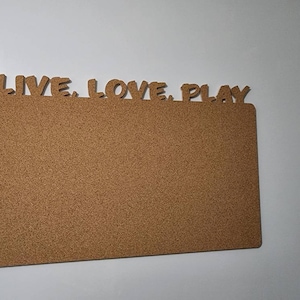 LIVE, LOVE, PLAY